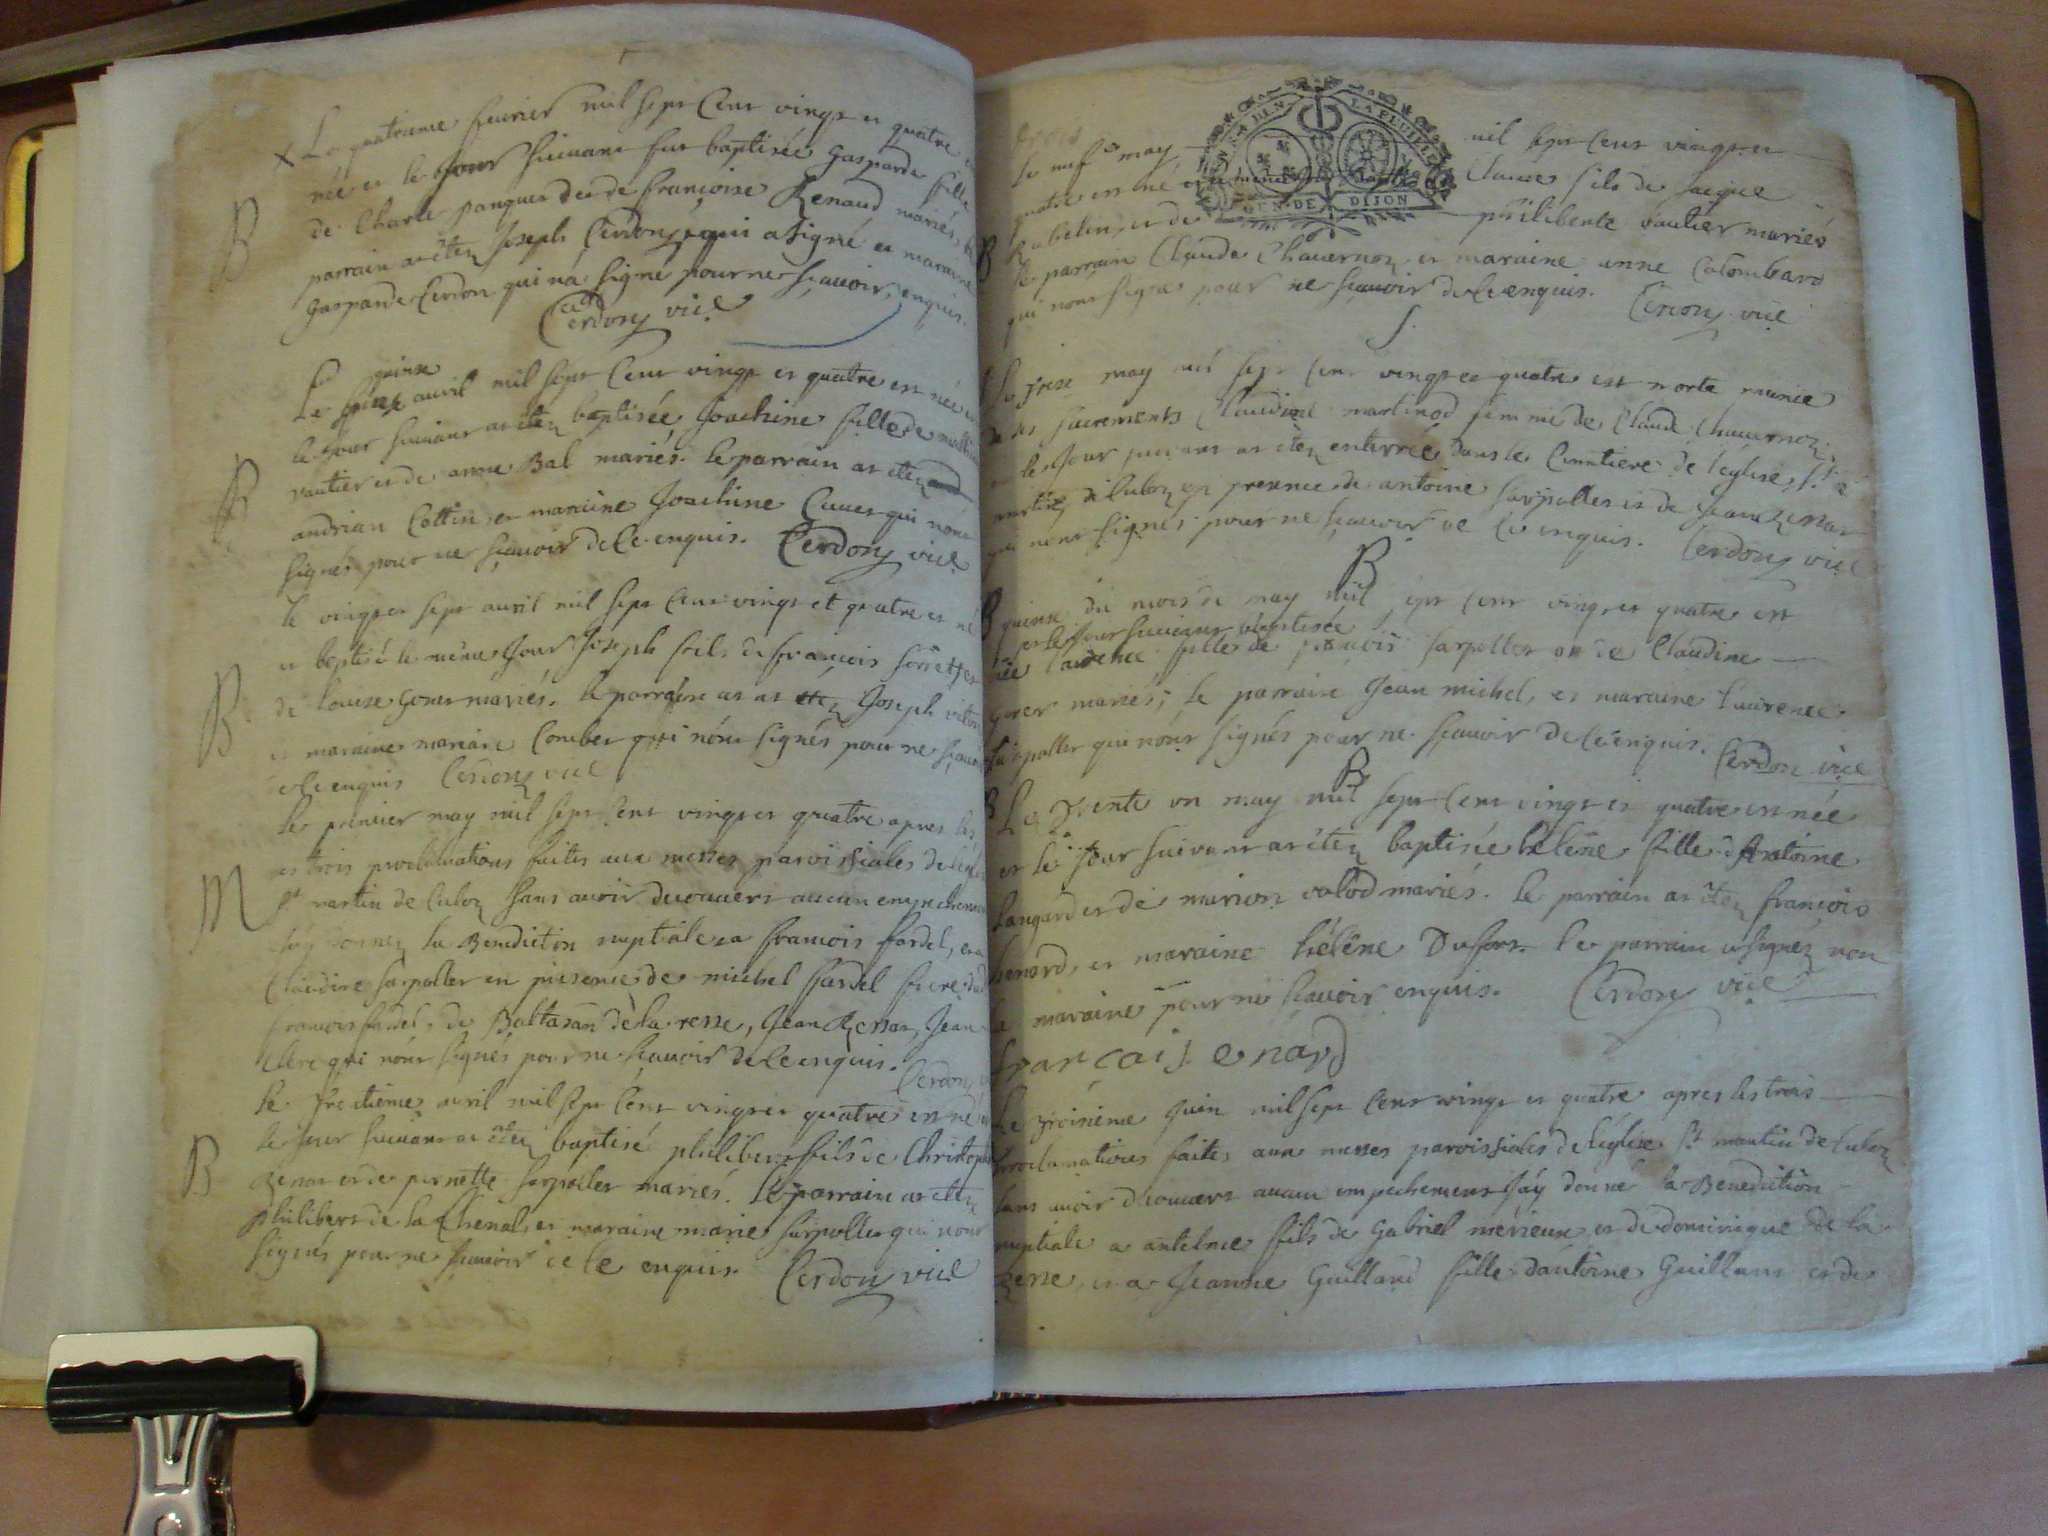 Le quatrieme feurier mil sept Cent vingt et quatre
née et le jour suiuant fut baptisée Gasparde fille
de Charle panquer et de françoise Renaud mariés
parrain a eter joseph Cerdon qui a signé et maraine
Gasparde Cerdon qui na signé pour ne scauoir enquis
Cerdon vice
quinse
Le auril mil sept Cent vingt et quatre est née
le jour suiuant at eter baptisée Joachine fille de
vautier et de anne Bal mariés. le parrain at eter
andrian Cottin et maraine Joachine qui nont
signés pour ne scauoir de Ce enquis. Cerdon vice
B
B
le vingt et sept auril mil sept Cent vingt et quatre et né
et baptisé le même Jour Joseph fils de françois
de Louise mariés. le parraine at Joseph
et maraine Comber qui nont signés pour ne scauoir
de Ce enquis Cerdon vice
B
le premier may mil sept Cent vingt et quatre apres les
trois proclamations faites aux messes paroissiales de
St martin de Culoz sans auoir decouuert aucun empechement
Jáy donner la Benediction nuptiale a francois fardel, et a
Claudine sarpollet en presence de michel fardel frere
francois fardel, de Baltasard de la resse, Jean Jean
Clerc qui nont signés pour ne scauoir de Ce enquis. Cerdon
M
le trentieme auril mil sept Cent vingt et quatre est né
le jour suiuant at eter baptisé philibert fils de Christophe
et de pernette sarpollet mariés. le parrain at eter
philibert de la Chenal, et maraine marie sarpollet qui nont
signés pour ne scauoir de Ce enquis. Cerdon vice
B
LA FEUILLE
GEN. DE DIJON
le neuf may mil sept Cent vingt et
quatre est né Claude fils de Jacque
Rabelin, et de philiberte vautier mariés
B
le parrain Claude Chauernoz et maraine anne Colombard
qui nont signés pour ne scauoir de Ce enquis. Cerdon vice
S.
Le may mil sept Cent vingt et quatre est morte munie
de ses sacrements Claudine martinod femme de Claude Chauernoz
le Jour suiuant at eter enterrée dans le Cimetiere de leglise St
martin de Culoz en presence de antoine sarpollet et de Jean
qui nont signés pour ne scauoir de Ce enquis. Cerdon vice
B
quinse du mois de may mil sept Cent vingt et quatre est
et le jour suiuant baptisée
née laurence fille de françois sarpollet et de Claudine
mariés; le parrain Jean michel, et maraine laurence
sarpollet qui nont signés pour ne scauoir de Ce enquis. Cerdon vice
B
Le Trente un may mil sept Cent vingt et quatre est née
et le jour suiuant at eter baptisée hélène fille d'Antoine
Langard et de marion valod mariés. le parrain at eter françois
henard, et maraine hélène Dufour. le parrain a signéz non
la maraine pour ne scauoir enquis. Cerdon vice
françois enard
Le troisième Juin mil sept Cent vingt et quatre apres les trois
proclamations faites aux messes paroissiales de leglise St martin de Culoz
sans auoir decouuert aucun empechement Jáy donné la Benediction
nuptiale a antelme fils de Gabriel merieux et de dominique de la
resse, et a Jeanne Guilland fille d'antoine Guilland et de